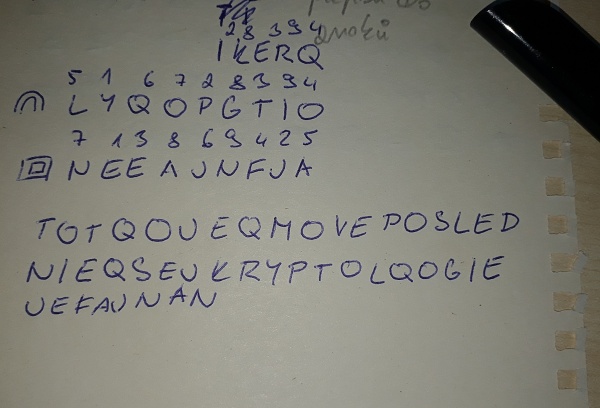 28394
IKERQ
5 1 6 7 2 8 3 9 4
LYQOPGTIO
7 1 3 8 6 9 4 2 5
NEEAJNFJA
TOTQOJEQMOVEPOSLED
NIEQSEJKRYPTOLQOGIE
JEFAJNAN